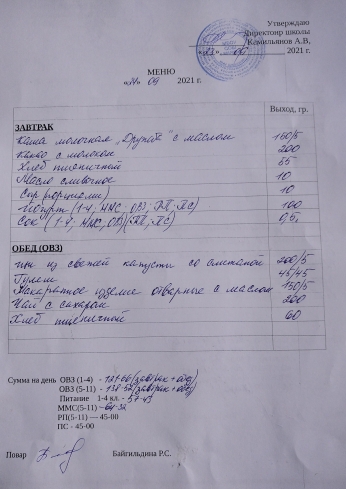 Утверждаю
Директор школы
Камильянов А.В,
2021 г.
МЕНЮ
«24» 09 2021 г.
Выход, гр.
ЗАВТРАК
Каша молочная „Дружба“ с маслом 150/5
Какао с молоком 200
Хлеб пшеничный 35
Масло сливочное 10
Сыр (порциями) 10
Йогурт (1-4; ММС; ОВЗ; РП; ПС) 100
Сок (1-4; ММС; ОВЗ)(РП; ПС) 0,2
ОБЕД (ОВЗ)
Щи из свежей капусты со сметаной 200/5
Гуляш 45/45
Макаронное изделие отварные с маслом 150/5
Чай с сахаром 200
Хлеб пшеничный 60
Сумма на день ОВЗ (1-4) - (завтрак + обед)
ОВЗ (5-11) - (завтрак + обед)
Питание 1-4 кл. - 57-45
ММС(5-11) –
РП(5-11) — 45-00
ПС - 45-00
Повар Байгильдина Р.С.